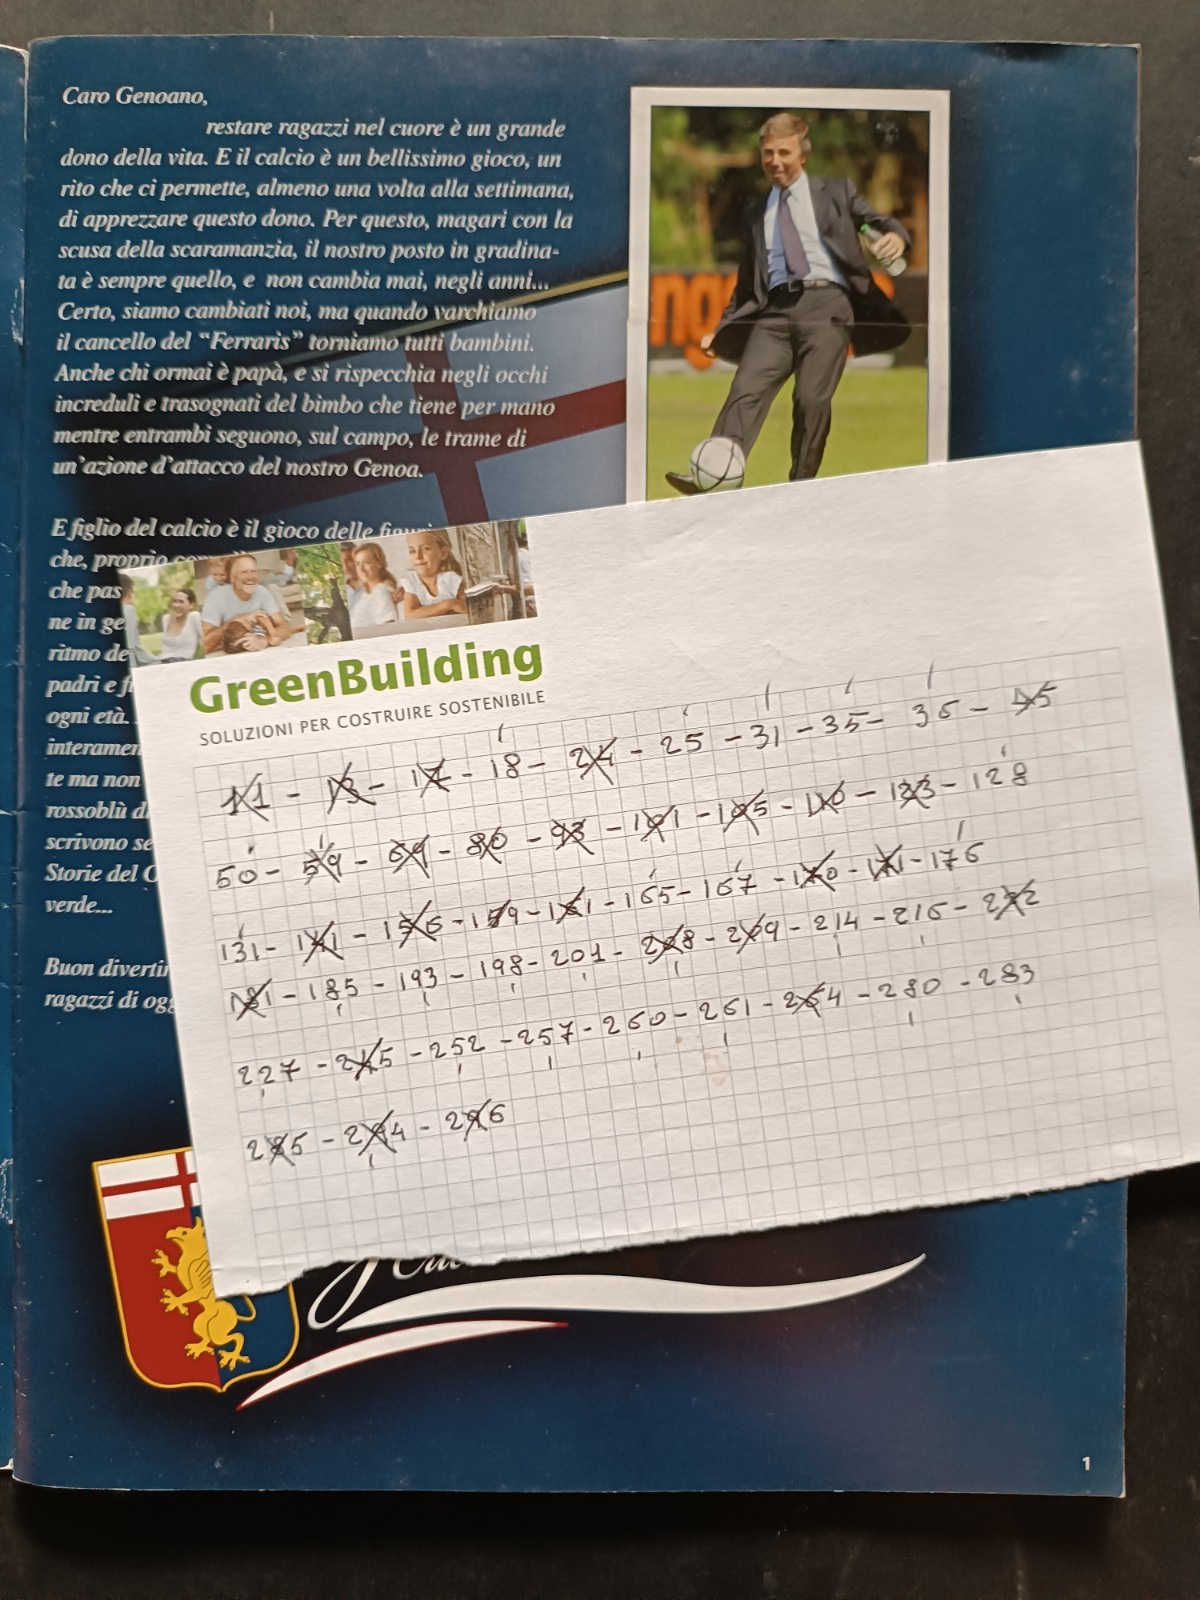 Caro Genoano,
restare ragazzi nel cuore è un grande
dono della vita. E il calcio è un bellissimo gioco, un
rito che ci permette, almeno una volta alla settimana,
di apprezzare questo dono. Per questo, magari con la
scusa della scaramanzia, il nostro posto in gradina-
ta è sempre quello, e non cambia mai, negli anni...
Certo, siamo cambiati noi, ma quando varchiamo
il cancello del “Ferraris” torniamo tutti bambini.
Anche chi ormai è papà, e si rispecchia negli occhi
increduli e trasognati del bimbo che tiene per mano
mentre entrambi seguono, sul campo, le trame di
un’azione d’attacco del nostro Genoa.
E figlio del calcio è il gioco delle
che, proprio
che pas
ne in ge
ritmo de
padri e fi
ogni età.
interamen
te ma non
rossoblù di
scrivono se
Storie del
verde...
Buon divertin
ragazzi di ogg
GreenBuilding
SOLUZIONI PER COSTRUIRE SOSTENIBILE
11 - 13 - 17 - 18 - 24 - 25 - 31 - 35 - 36 - 45
50 - 59 - 69 - 80 - 93 - 101 - 105 - 110 - 123 - 128
131 - 141 - 156 - 159 - 161 - 165 - 167 - 170 - 171 - 176
181 - 185 - 193 - 198 - 201 - 208 - 209 - 214 - 216 - 222
227 - 245 - 252 - 257 - 260 - 261 - 264 - 280 - 283
285 - 294 - 296
1